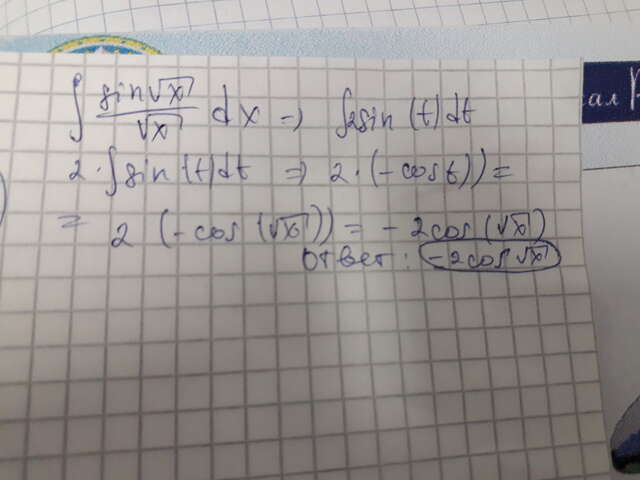 ∫ sin√x / √x dx → ∫2sin (t)dt
2·∫sin (t)dt ⇒ 2·(-cost)) =
= 2 (-cos (√x)) = - 2cos (√x)
ответ: -2cos √x
ал